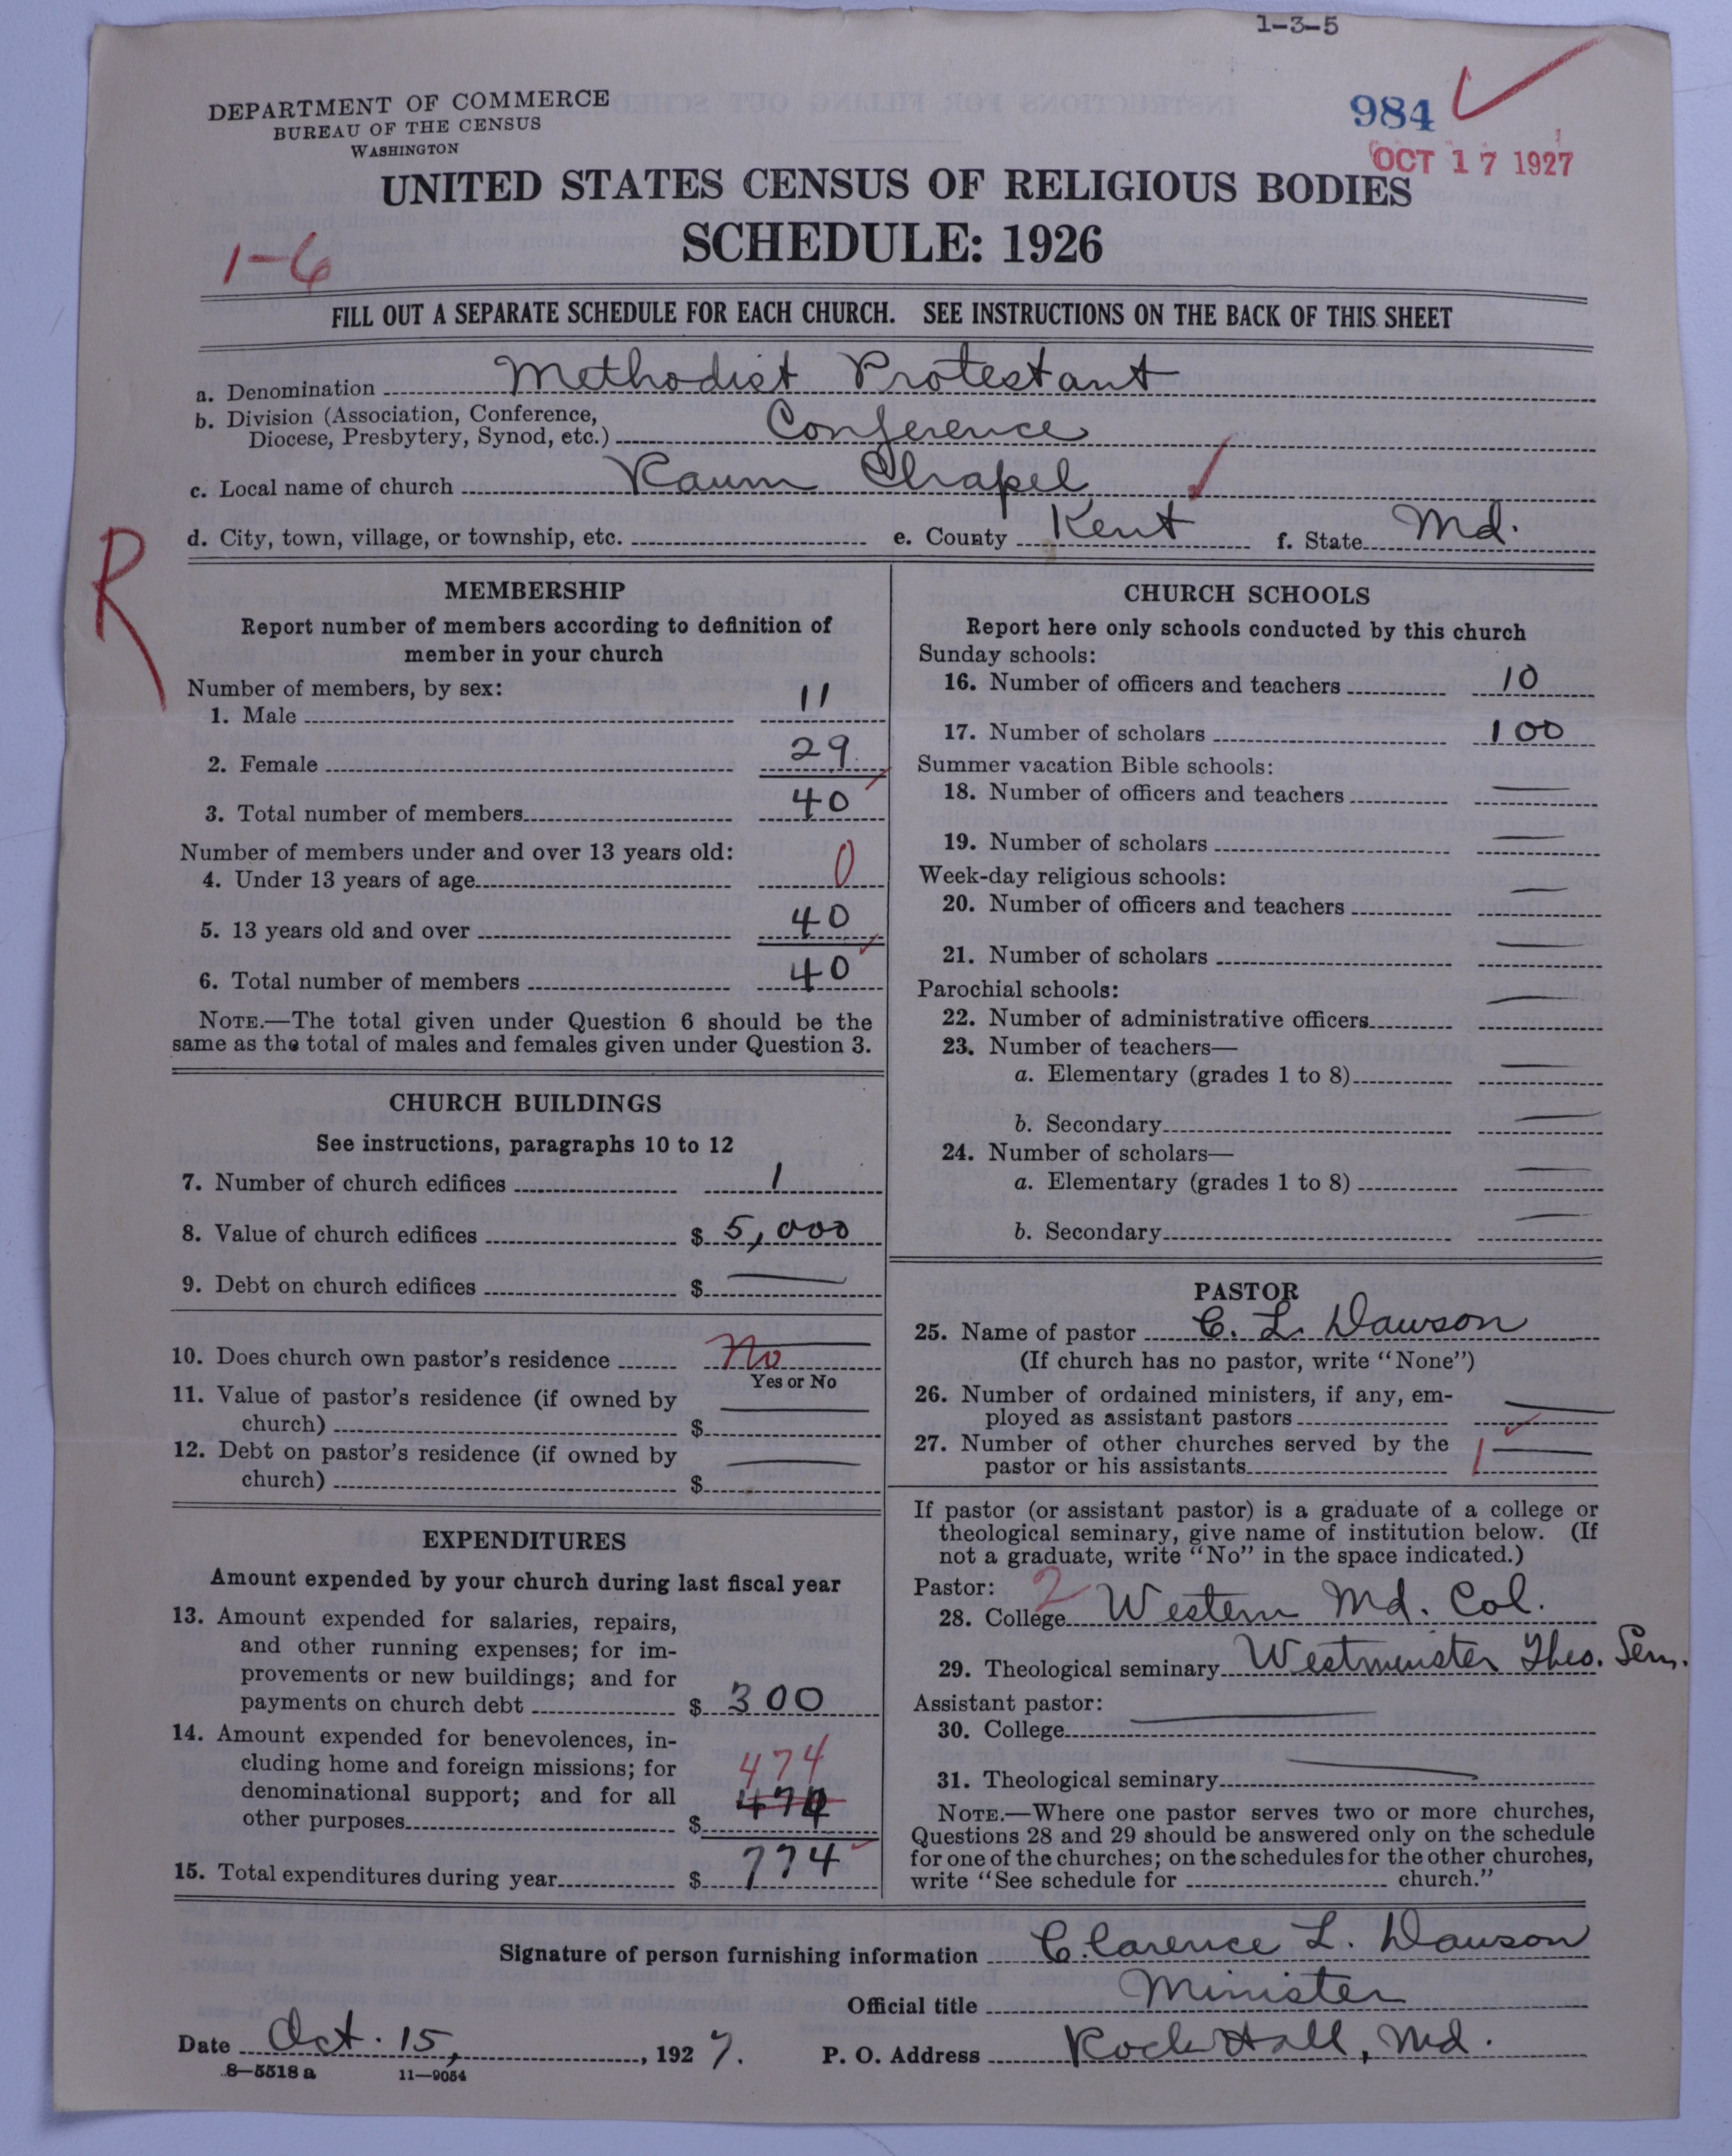 1-3-5
DEPARTMENT OF COMMERCE
BUREAU OF THE CENSUS
WASHINGTON
984
OCT 17 1927
UNITED STATES CENSUS OF RELIGIOUS BODIES
SCHEDULE: 1926
1-6
FILL OUT A SEPARATE SCHEDULE FOR EACH CHURCH. SEE INSTRUCTIONS ON THE BACK OF THIS SHEET
a. Denomination Methodist Protestant
b. Division (Association, Conference,
Diocese, Presbytery, Synod, etc.) Conference
c. Local name of church Raum Chapel
d. City, town, village, or township, etc. e. County Kent f. State Md.
R
MEMBERSHIP
Report number of members according to definition of
member in your church
Number of members, by sex:
1. Male 11
2. Female 29
3. Total number of members 40
Number of members under and over 13 years old:
4. Under 13 years of age 0
5. 13 years old and over 40
6. Total number of members 40
NOTE.—The total given under Question 6 should be the
same as the total of males and females given under Question 3.
CHURCH BUILDINGS
See instructions, paragraphs 10 to 12
7. Number of church edifices 1
8. Value of church edifices $ 5,000
9. Debt on church edifices $ —
10. Does church own pastor's residence No
Yes or No
11. Value of pastor's residence (if owned by
church) $ —
12. Debt on pastor's residence (if owned by
church) $ —
EXPENDITURES
Amount expended by your church during last fiscal year
13. Amount expended for salaries, repairs,
and other running expenses; for im-
provements or new buildings; and for
payments on church debt $ 300
14. Amount expended for benevolences, in-
cluding home and foreign missions; for 474
denominational support; and for all 474
other purposes $
15. Total expenditures during year $ 774
CHURCH SCHOOLS
Report here only schools conducted by this church
Sunday schools:
16. Number of officers and teachers 10
17. Number of scholars 100
Summer vacation Bible schools:
18. Number of officers and teachers —
19. Number of scholars —
Week-day religious schools:
20. Number of officers and teachers —
21. Number of scholars —
Parochial schools:
22. Number of administrative officers —
23. Number of teachers—
a. Elementary (grades 1 to 8) —
b. Secondary —
24. Number of scholars—
a. Elementary (grades 1 to 8) —
b. Secondary —
PASTOR
25. Name of pastor C. L. Dawson
(If church has no pastor, write "None")
26. Number of ordained ministers, if any, em-
ployed as assistant pastors —
27. Number of other churches served by the
pastor or his assistants 1 —
If pastor (or assistant pastor) is a graduate of a college or
theological seminary, give name of institution below. (If
not a graduate, write "No" in the space indicated.)
Pastor: 2
28. College Western Md. Col.
29. Theological seminary Westminster Theo. Sem.
Assistant pastor:
30. College —
31. Theological seminary —
NOTE.—Where one pastor serves two or more churches,
Questions 28 and 29 should be answered only on the schedule
for one of the churches; on the schedules for the other churches,
write "See schedule for church."
Signature of person furnishing information Clarence L. Dawson
Official title Minister
Date Oct. 15, 1927. P. O. Address Rock Hall, Md.
8-5518 a 11-9054